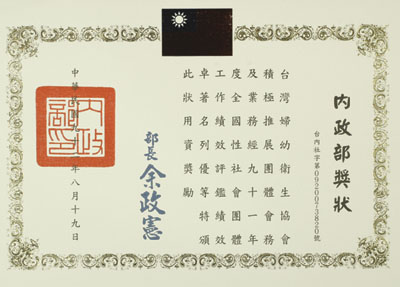 內政部獎狀
台內社字第0920073820號
台灣婦幼衛生協會
積極推展團體會務
及業務經九十一年
度全國性社會團體
工作績效評鑑績效
卓著名列優等特頒
此狀用資獎勵
部長 余政憲
中華民國九十二年八月十九日
內政部印